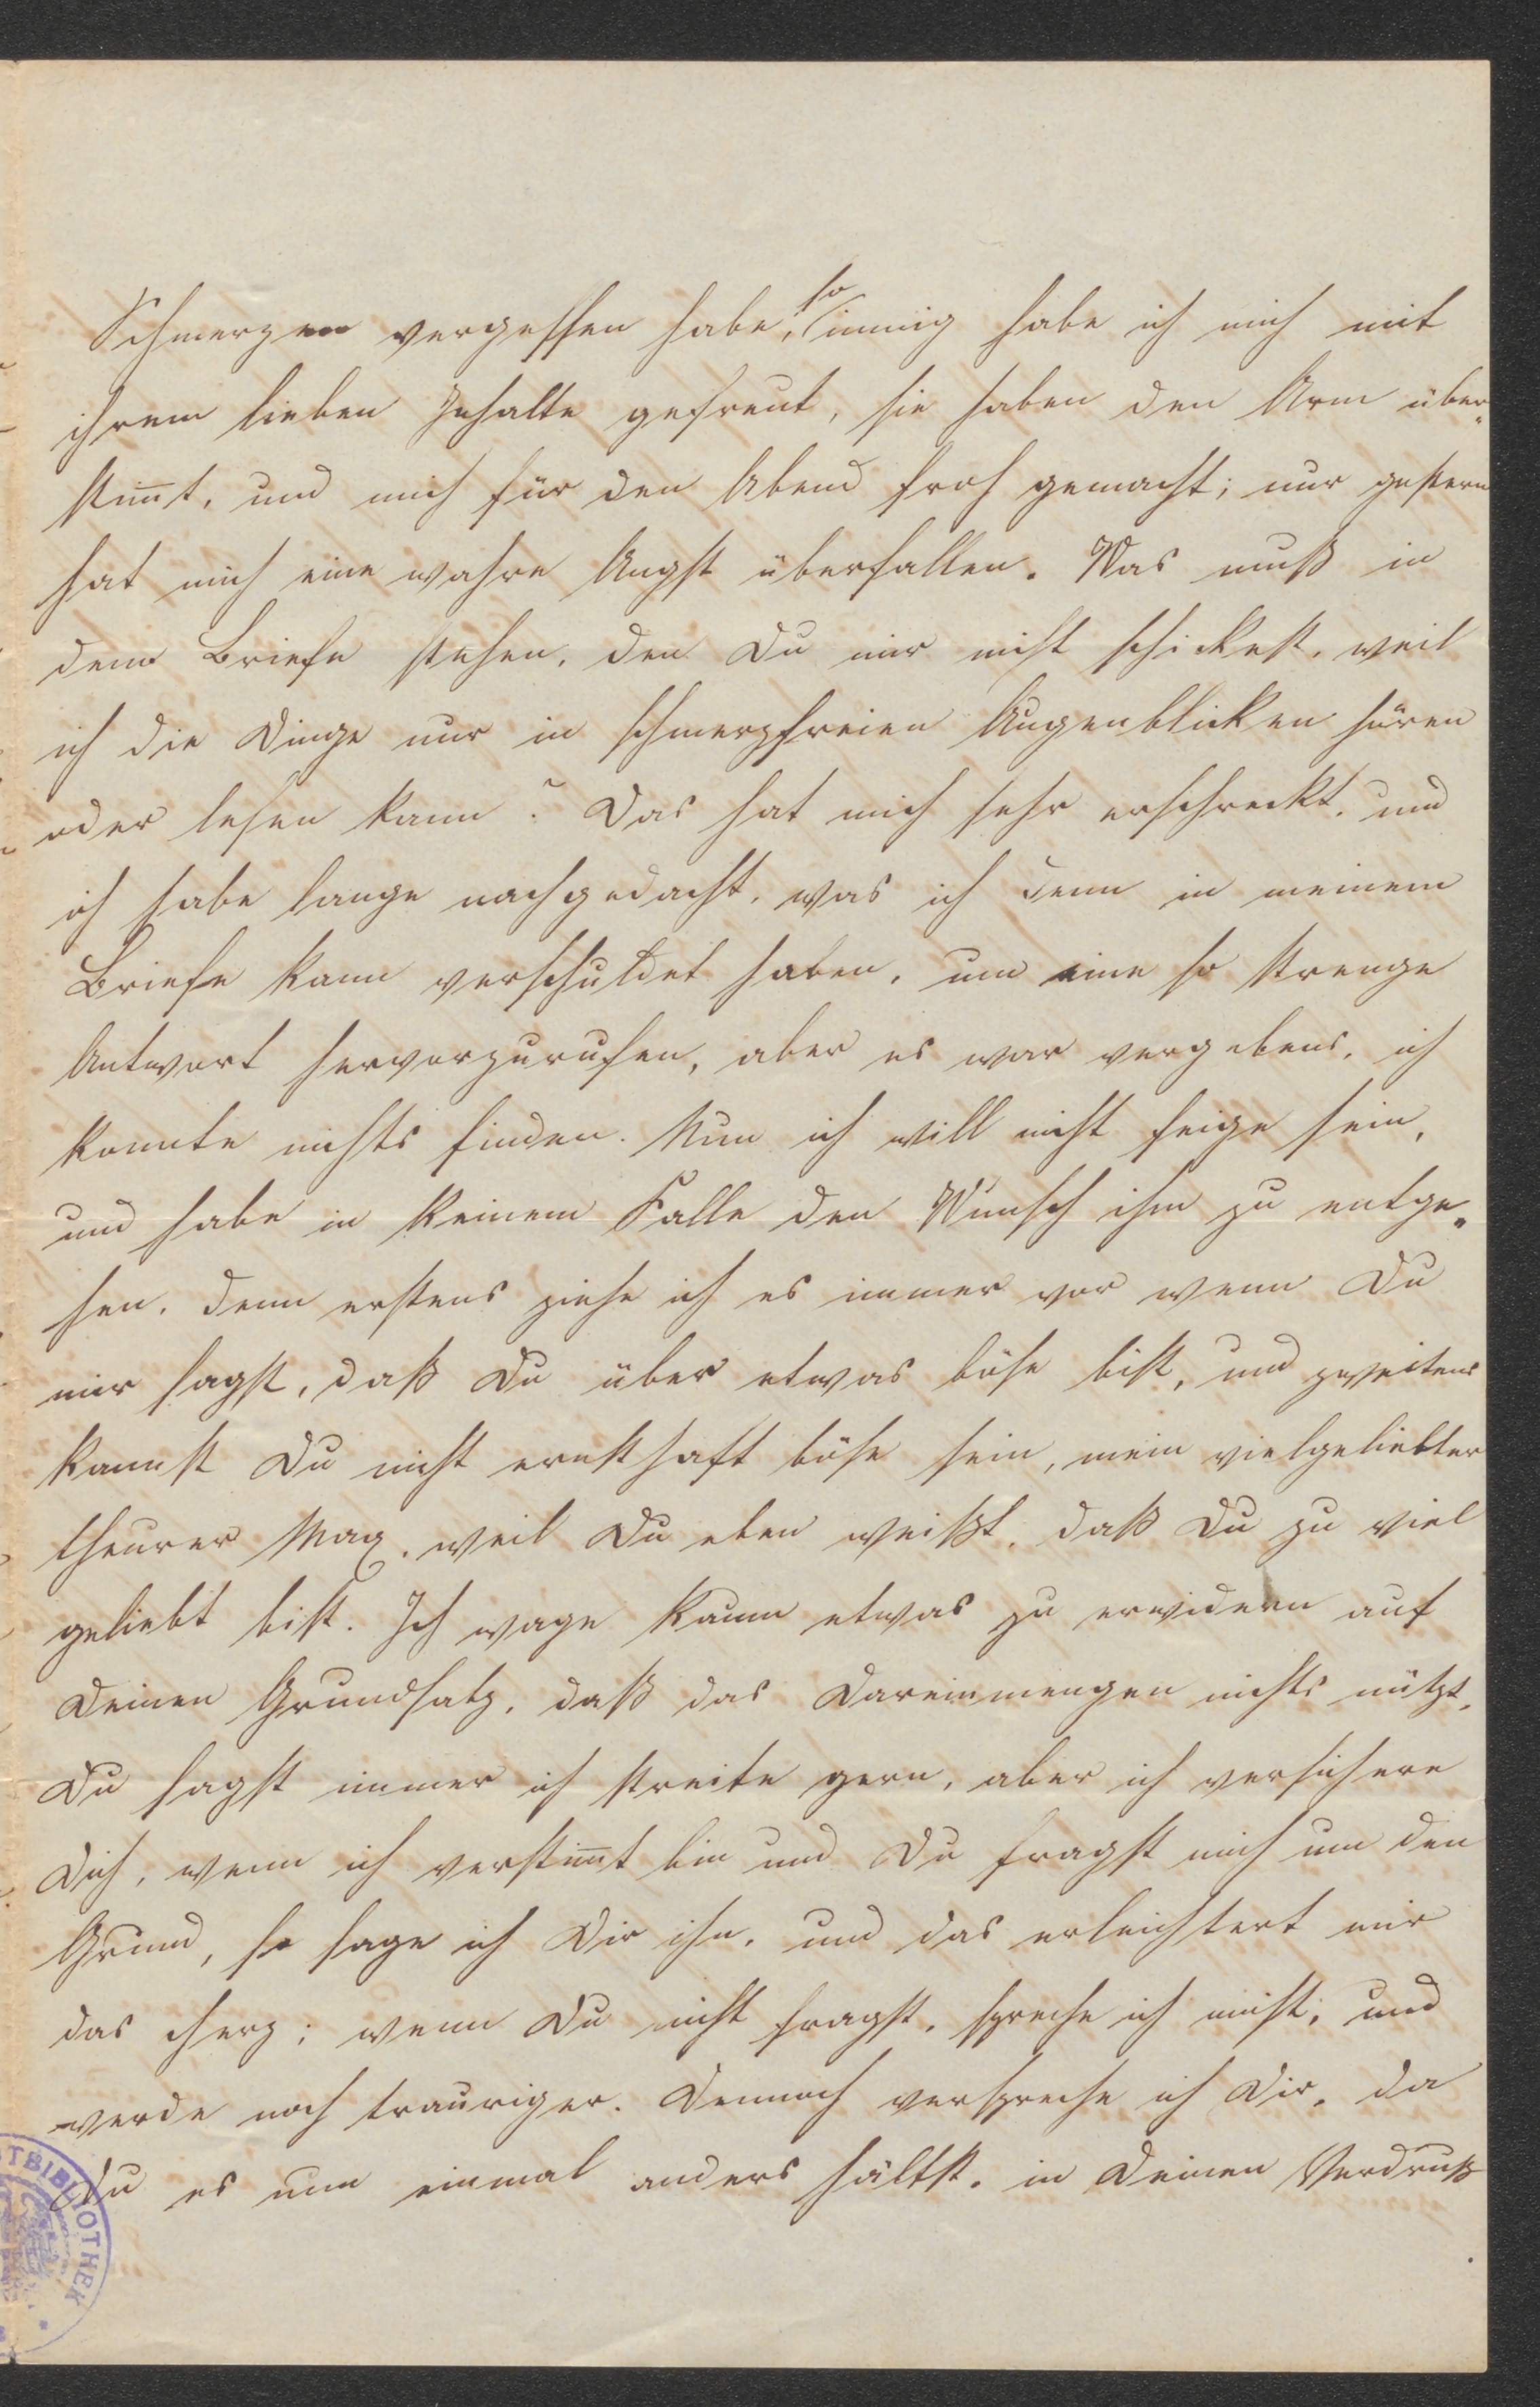 Schmerzen vergessen habe, so innig habe ich mich mit
ihrem lieben Inhalte gefreut, sie haben den Arm über-
stimmt, und mich für den Abend froh gemacht; nur gestern
hat mich eine wahre Angst überfallen. Was muß in
dem Briefe stehen, den Du mir nicht schickest, weil
ich die Dinge nur in schmerzfreien Augenblicken hören
oder lesen kann? Das hat mich sehr erschreckt, und
ich habe lange nachgedacht, was ich denn in meinem
Briefe kann verschuldet haben, um eine so strenge
Antwort hervorzurufen, aber es war vergebens, ich
konnte nichts finden. Nun ich will nicht feige sein,
und habe in keinem Falle den Wunsch ihm zu entge-
hen, denn erstens ziehe ich es immer vor wenn Du
mir sagst, daß Du über etwas böse bist, und zweitens
kannst Du nicht ernsthaft böse sein, mein vielgeliebter
theurer Max, weil Du eben weißt, daß Du zu viel
geliebt bist. Ich wage kaum etwas zu erwidern auf
Deinen Grundsatz, daß das Dareinmengen nichts nützt,
Du sagst immer ich streite gern, aber ich versichere
Dich, wenn ich verstimmt bin und Du fragst mich um den
Grund, so sage ich Dir ihn, und das erleichtert mir
das Herz; wenn Du nicht fragst, spreche ich nicht, und
werde noch trauriger. Dennoch verspreche ich Dir, da
Du es nun einmal anders hältst, in Deinen Verdruß
TBIBLIOTHEK